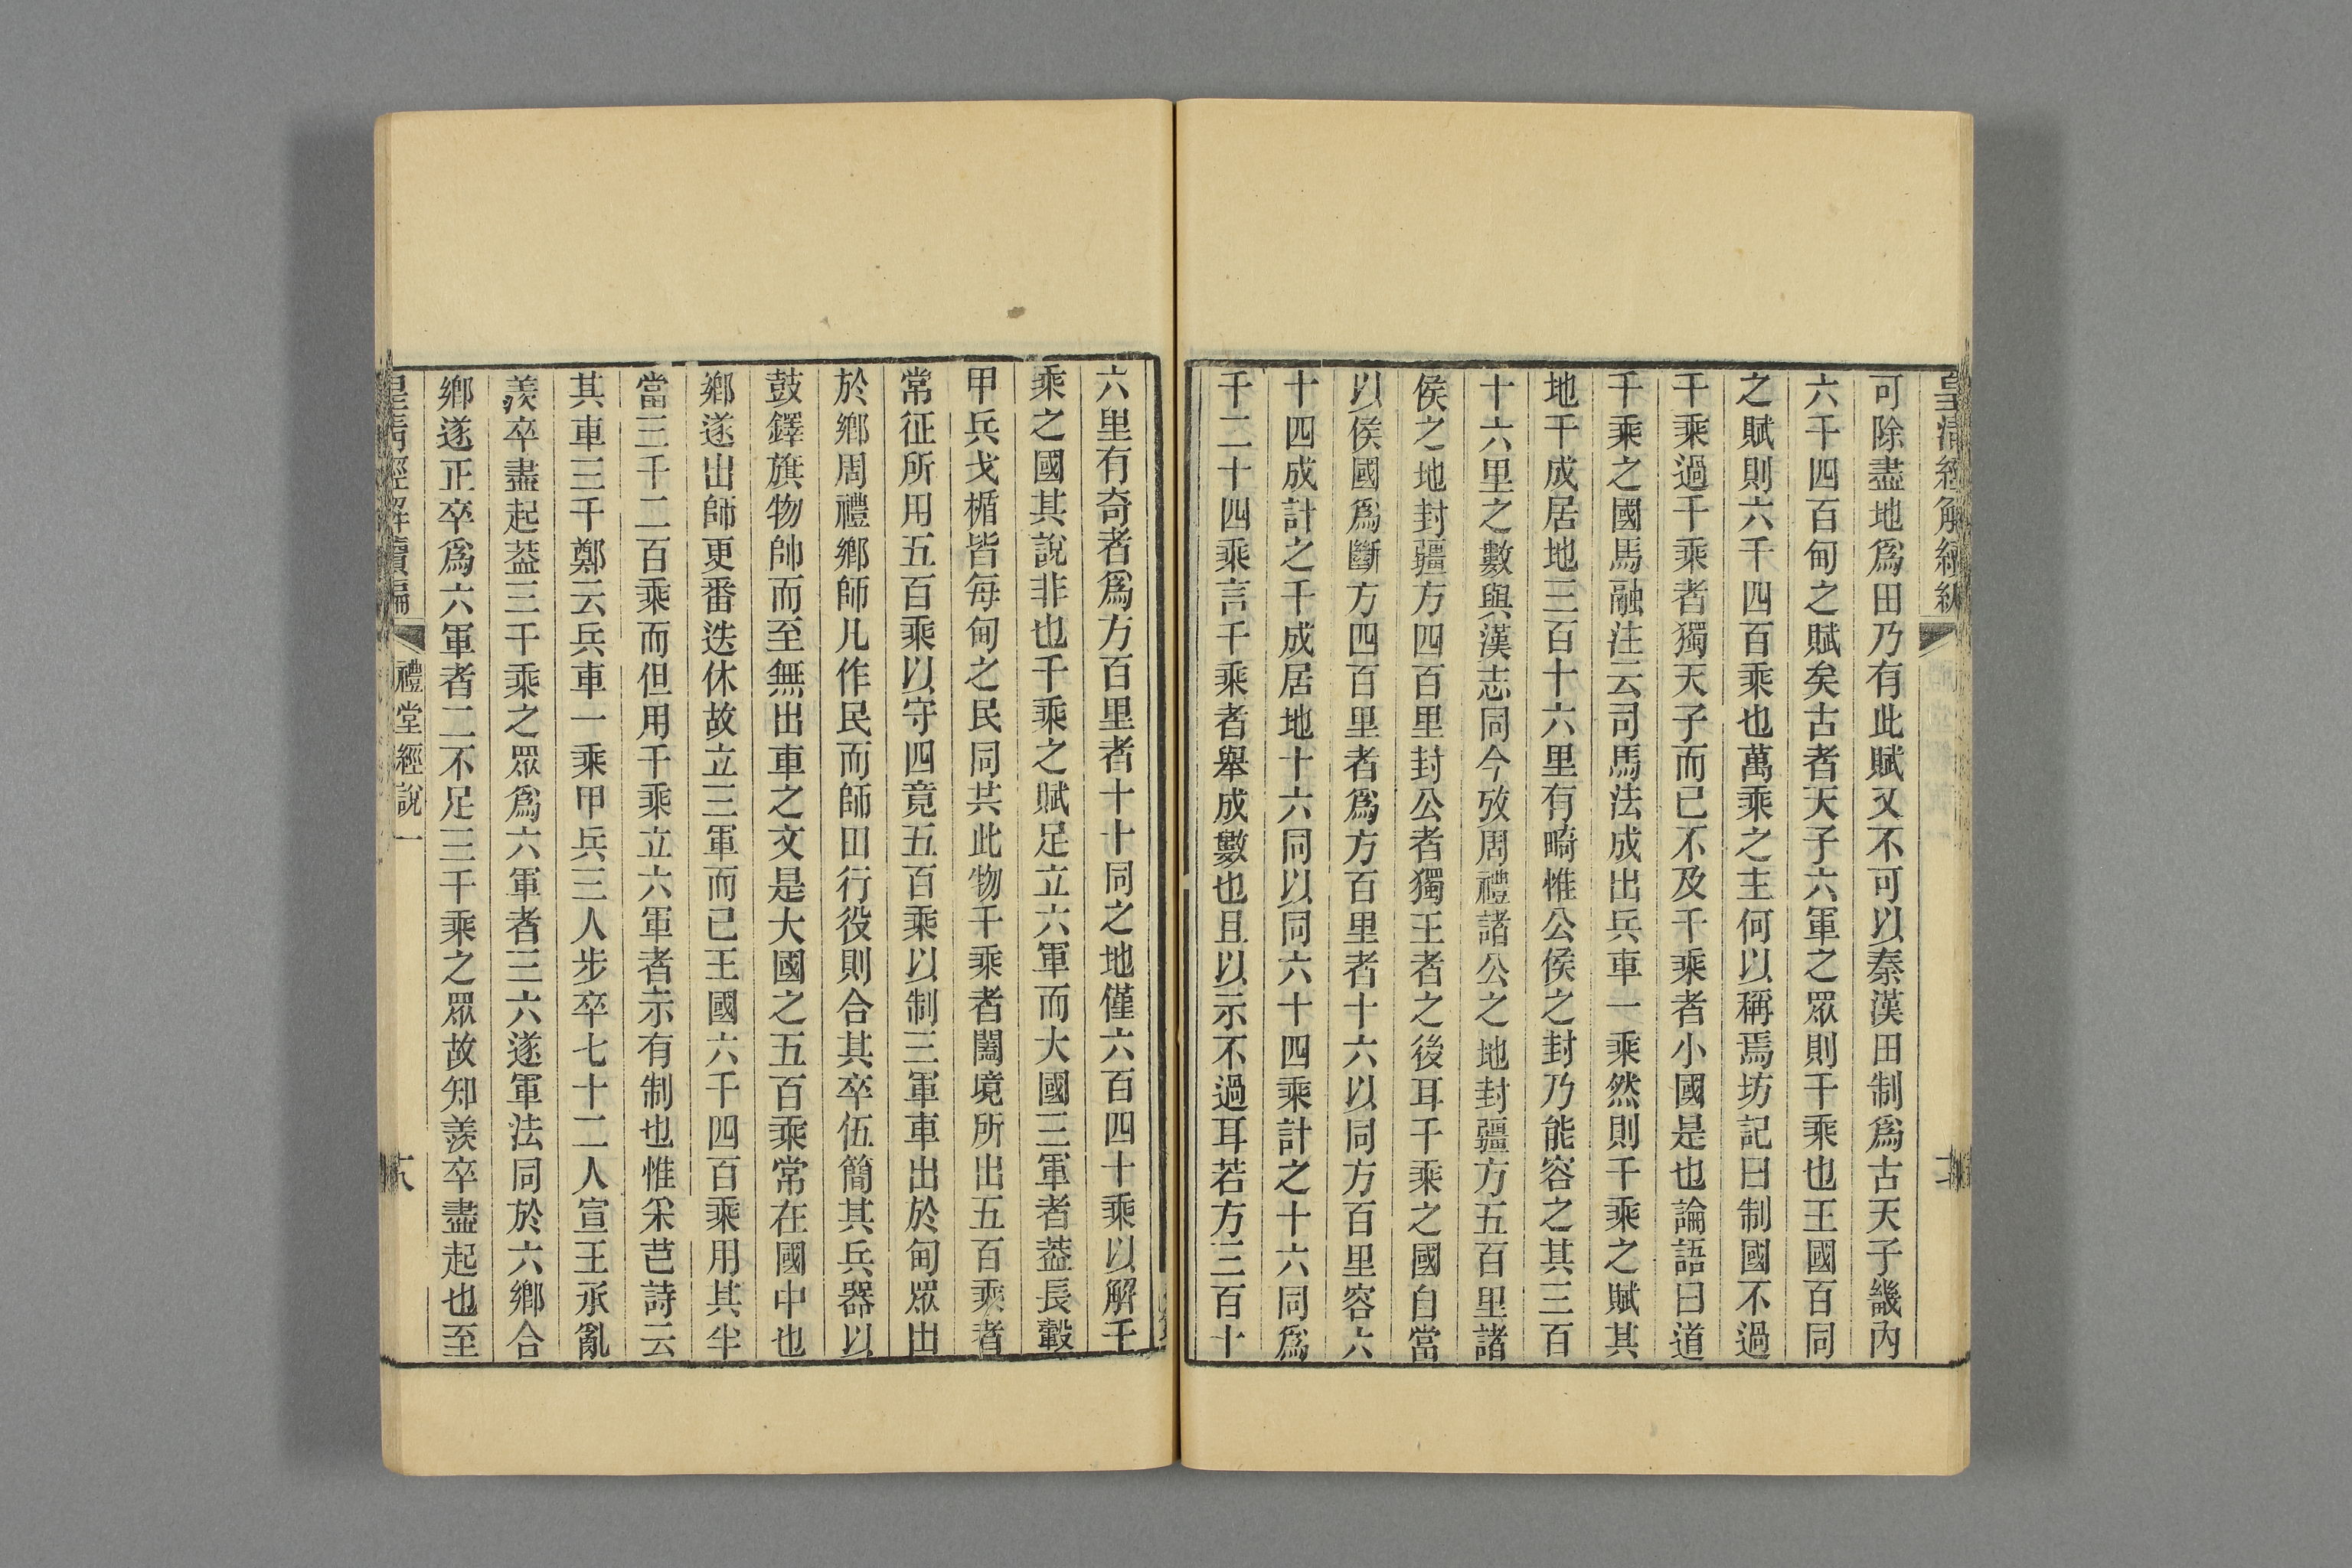 皇清經解續編
可除盡地爲田乃有此賦又不可以秦漢田制爲古天子畿內
六千四百甸之賦矣古者天子六軍之眾則千乘也王國百同
之賦則六千四百乘也萬乘之主何以稱焉坊記曰制國不過
千乘過千乘者獨天子而已不及千乘者小國是也論語曰道
千乘之國馬融注云司馬法成出兵車一乘然則千乘之賦其
地千成居地三百十六里有畸惟公侯之封乃能容之其三百
十六里之數與漢志同今攷周禮諸公之地封疆方五百里諸
侯之地封疆方四百里封公者獨王者之後耳千乘之國自當
以侯國爲斷方四百里者爲方百里者十六以同方百里容六
十四成計之千成居地十六同以同六十四乘計之十六同爲
千二十四乘言千乘者舉成數也且以示不過耳若方三百十
六里有奇者爲方百里者十十同之地僅六百四十乘以解千
乘之國其說非也千乘之賦足立六軍而大國三軍者葢長轂
甲兵戈楯皆每甸之民同共此物千乘者闔境所出五百乘者
常征所用五百乘以守四竟五百乘以制三軍車出於甸眾出
於鄉周禮鄉師凡作民而師田行役則合其卒伍簡其兵器以
鼓鐸旗物帥而至無出車之文是大國之五百乘常在國中也
鄉遂出師更番迭休故立三軍而已王國六千四百乘用其半
當三千二百乘而但用千乘立六軍者示有制也惟采芑詩云
其車三千鄭云兵車一乘甲兵三人步卒七十二人宣王承亂
羨卒盡起葢三千乘之眾爲六軍者三六遂軍法同於六鄉合
鄉遂正卒爲六軍者二不足三千乘之眾故知羨卒盡起也至
皇清經解續編
禮堂經說一